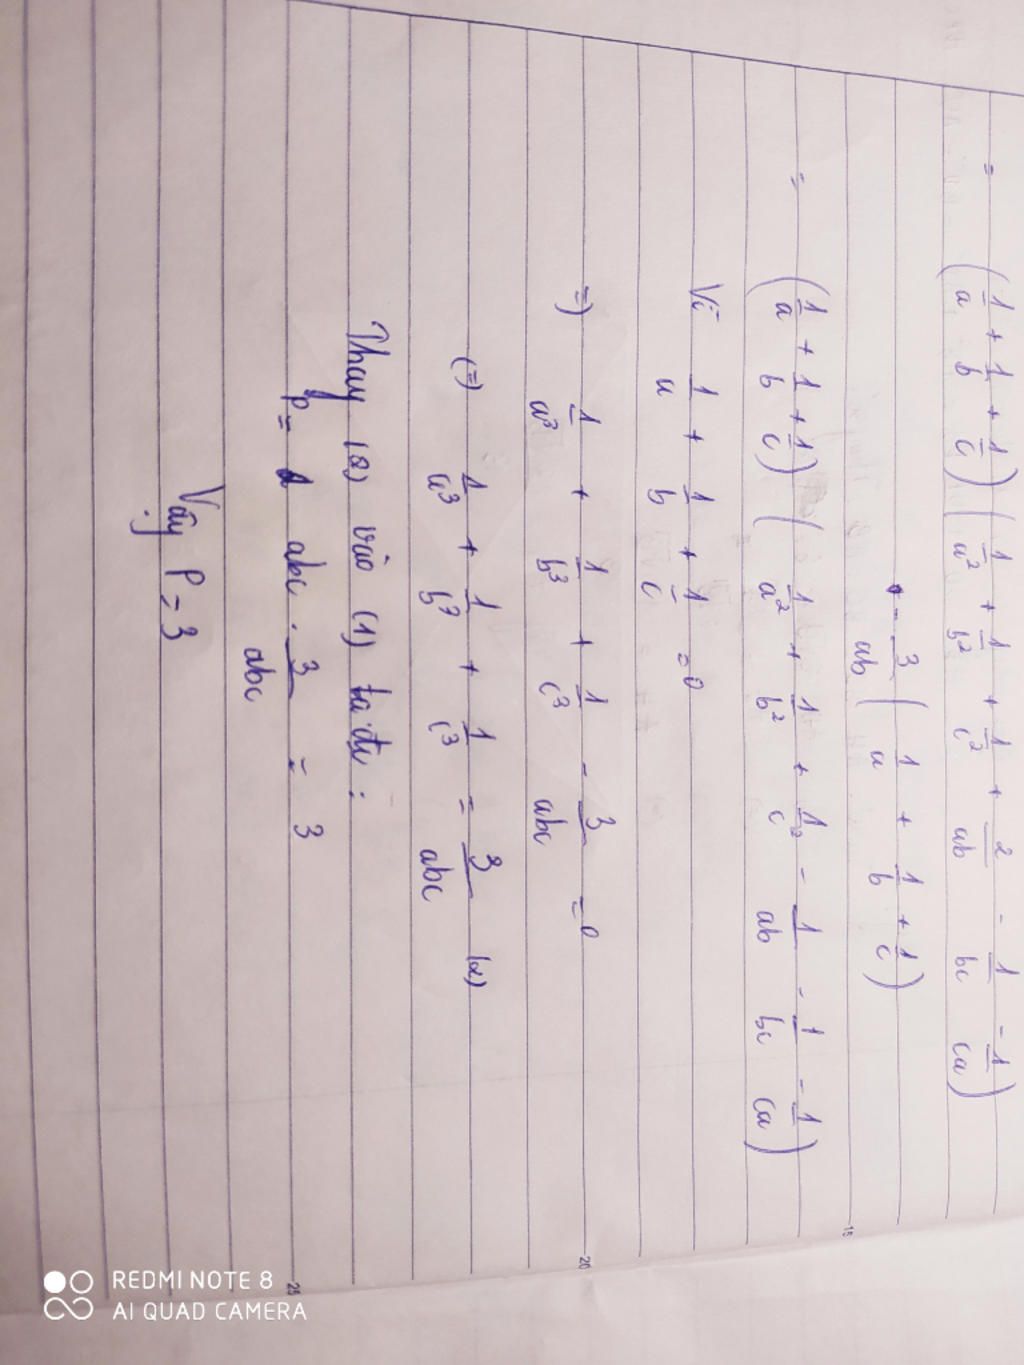 = (1/a + 1/b + 1/c) (1/a² + 1/b² + 1/c² + 2/ab - 1/bc - 1/ca)
- 3/ab (1/a + 1/b + 1/c)
= (1/a + 1/b + 1/c) (1/a² + 1/b² + 1/c² - 1/ab - 1/bc - 1/ca)
Vì 1/a + 1/b + 1/c = 0
=) 1/a³ + 1/b³ + 1/c³ - 3/abc = 0
(=) 1/a³ + 1/b³ + 1/c³ = 3/abc (2)
Thay (2) vào (1) ta đc :
P = abc . 3/abc = 3
Vậy P = 3
15
20
25
REDMI NOTE 8
AI QUAD CAMERA